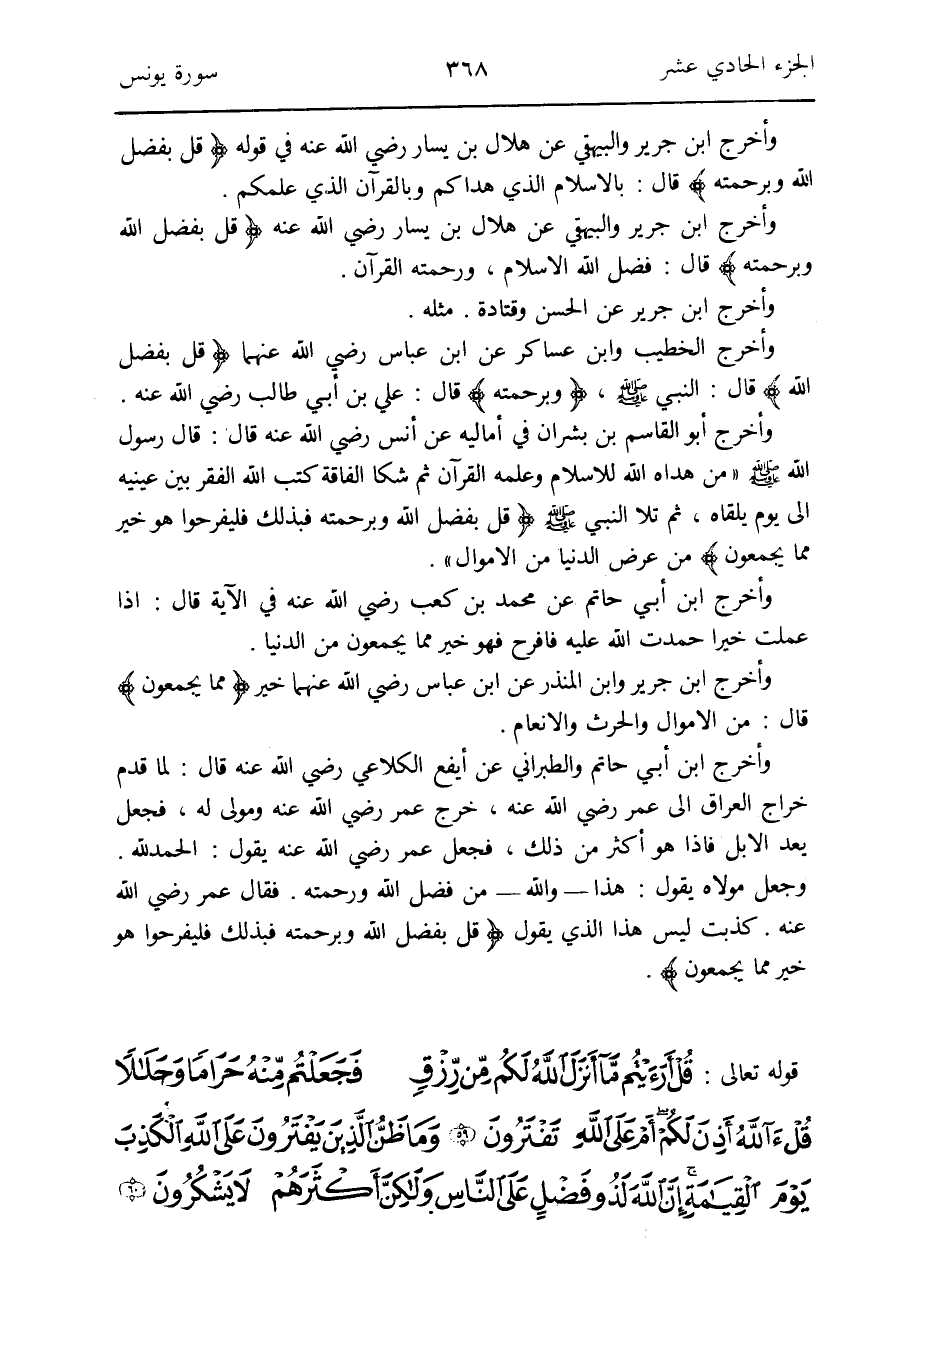 الجزء الحادي عشر ٣٦٨ سورة يونس
وأخرج ابن جرير والبيهقي عن هلال بن يسار رضي الله عنه في قوله ﴿ قل بفضل
الله وبرحمته ﴾ قال : بالاسلام الذي هداكم وبالقرآن الذي علمكم .
وأخرج ابن جرير والبيهقي عن هلال بن يسار رضي الله عنه ﴿ قل بفضل الله
وبرحمته ﴾ قال : فضل الله الاسلام ، ورحمته القرآن .
وأخرج ابن جرير عن الحسن وقتادة . مثله .
وأخرج الخطيب وابن عساكر عن ابن عباس رضي الله عنهما ﴿ قل بفضل
الله ﴾ قال : النبي ﷺ ، ﴿ وبرحمته ﴾ قال : علي بن أبي طالب رضي الله عنه .
وأخرج أبو القاسم بن بشران في أماليه عن أنس رضي الله عنه قال : قال رسول
الله ﷺ « من هداه الله للاسلام وعلمه القرآن ثم شكا الفاقة كتب الله الفقر بين عينيه
الى يوم يلقاه ، ثم تلا النبي ﷺ ﴿ قل بفضل الله وبرحمته فبذلك فليفرحوا هو خير
مما يجمعون ﴾ من عرض الدنيا من الاموال » .
وأخرج ابن أبي حاتم عن محمد بن كعب رضي الله عنه في الآية قال : اذا
عملت خيرا حمدت الله عليه فافرح فهو خير مما يجمعون من الدنيا .
وأخرج ابن جرير وابن المنذر عن ابن عباس رضي الله عنهما خير ﴿ مما يجمعون ﴾
قال : من الاموال والحرث والانعام .
وأخرج ابن أبي حاتم والطبراني عن أيفع الكلاعي رضي الله عنه قال : لما قدم
خراج العراق الى عمر رضي الله عنه ، خرج عمر رضي الله عنه ومولى له ، فجعل
يعد الابل فاذا هو أكثر من ذلك ، فجعل عمر رضي الله عنه يقول : الحمدلله .
وجعل مولاه يقول : هذا — والله — من فضل الله ورحمته . فقال عمر رضي الله
عنه . كذبت ليس هذا الذي يقول ﴿ قل بفضل الله وبرحمته فبذلك فليفرحوا هو
خير مما يجمعون ﴾ .
قوله تعالى : قُلْ أَرَءَيْتُم مَّآ أَنزَلَ ٱللَّهُ لَكُم مِّن رِّزْقٍ فَجَعَلْتُم مِّنْهُ حَرَامًا وَحَلَٰلًا
قُلْ ءَآللَّهُ أَذِنَ لَكُمْ أَمْ عَلَى ٱللَّهِ تَفْتَرُونَ ﴿٥٩﴾ وَمَا ظَنُّ ٱلَّذِينَ يَفْتَرُونَ عَلَى ٱللَّهِ ٱلْكَذِبَ
يَوْمَ ٱلْقِيَٰمَةِ إِنَّ ٱللَّهَ لَذُو فَضْلٍ عَلَى ٱلنَّاسِ وَلَٰكِنَّ أَكْثَرَهُمْ لَا يَشْكُرُونَ ﴿٦٠﴾